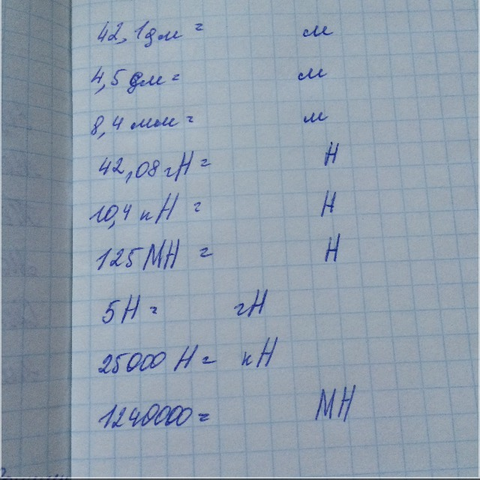 42,1дм = м
4,5 дм = м
8,4 мм = м
42,08 гН = Н
10,4 кН = Н
125 МН = Н
5Н = гН
25000 Н = кН
1240000 = МН